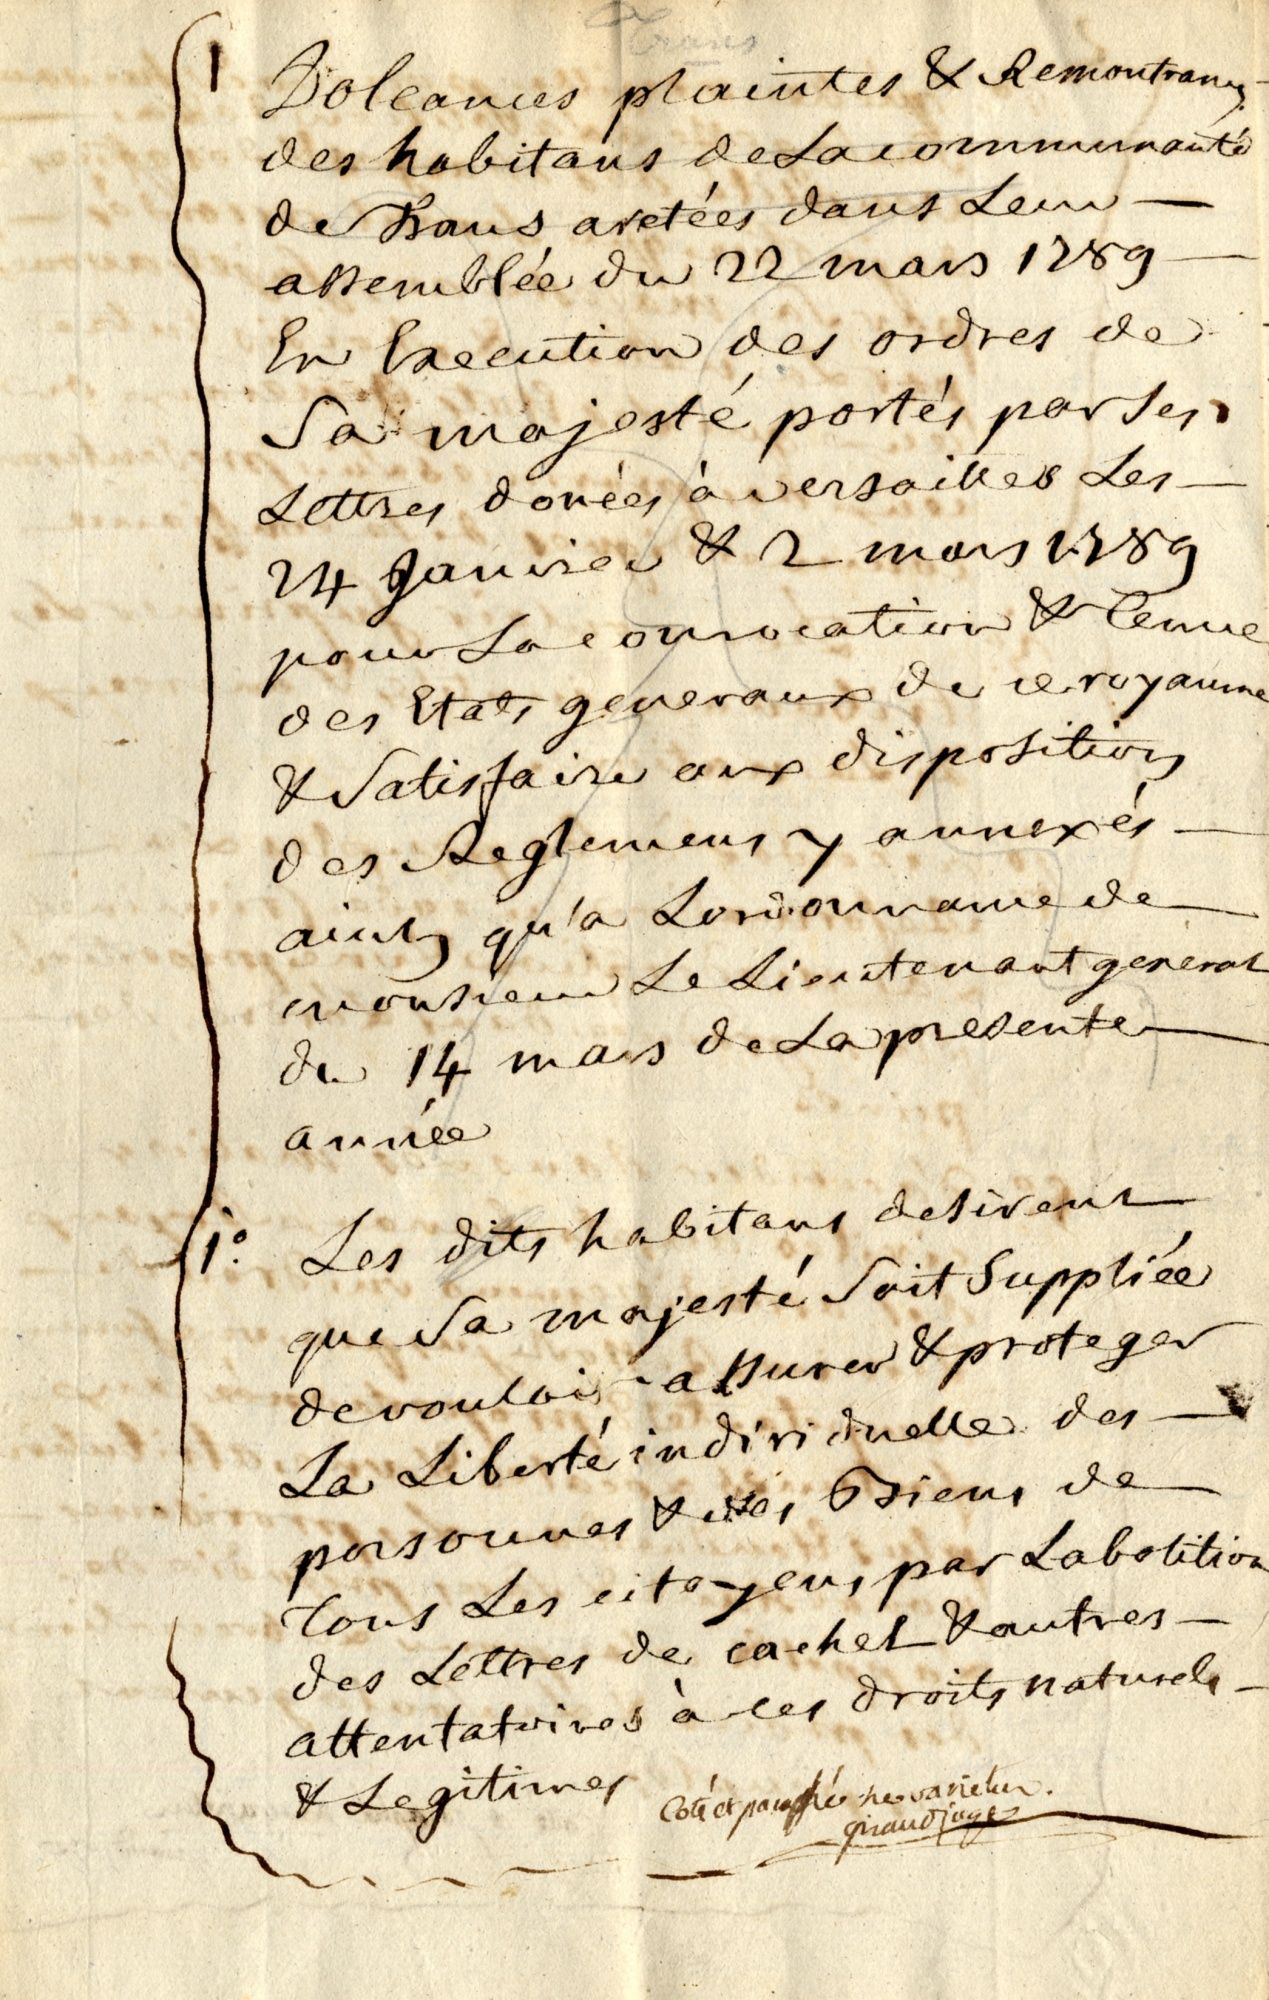 Trans
1
Doleances plaintes & Remontrances
des habitans de La communauté
de Trans aretées dans Leur
assemblée du 22 mars 1789
En Execution des ordres de
Sa majesté portés par Ses
Lettres donées à versailles Les
24 Janvier & 2 mars 1789
pour La convocation & Tenue
des Etats generaux de ce royaume
& Satisfaire aux dispositions
des Reglemens y annexés
ainsy qu'a Lordonnance de
monsieur Le Lieutenant general
du 14 mars de La presente
année
1º. Les dits habitans desirent
que Sa majesté Soit Suppliée
de vouloir assurer & proteger
La Liberté individuelle des
personnes & des Biens de
Tous Les citoyens, par Labolition
des Lettres de cachet & autres
attentatoires à ces droits naturels
& Legitimes
Coté et paraphé ne varietur.
giraud juge